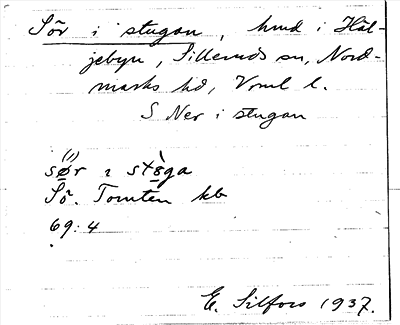 Sör i stugan, hmd i Häl-
jebyn, Silleruds sn, Nord-
marks hd, Vrml l.
S Ner i stugan
sør ı stɵ̀ga
Sö. Tomten kb
69:4
E. Silfors 1937.